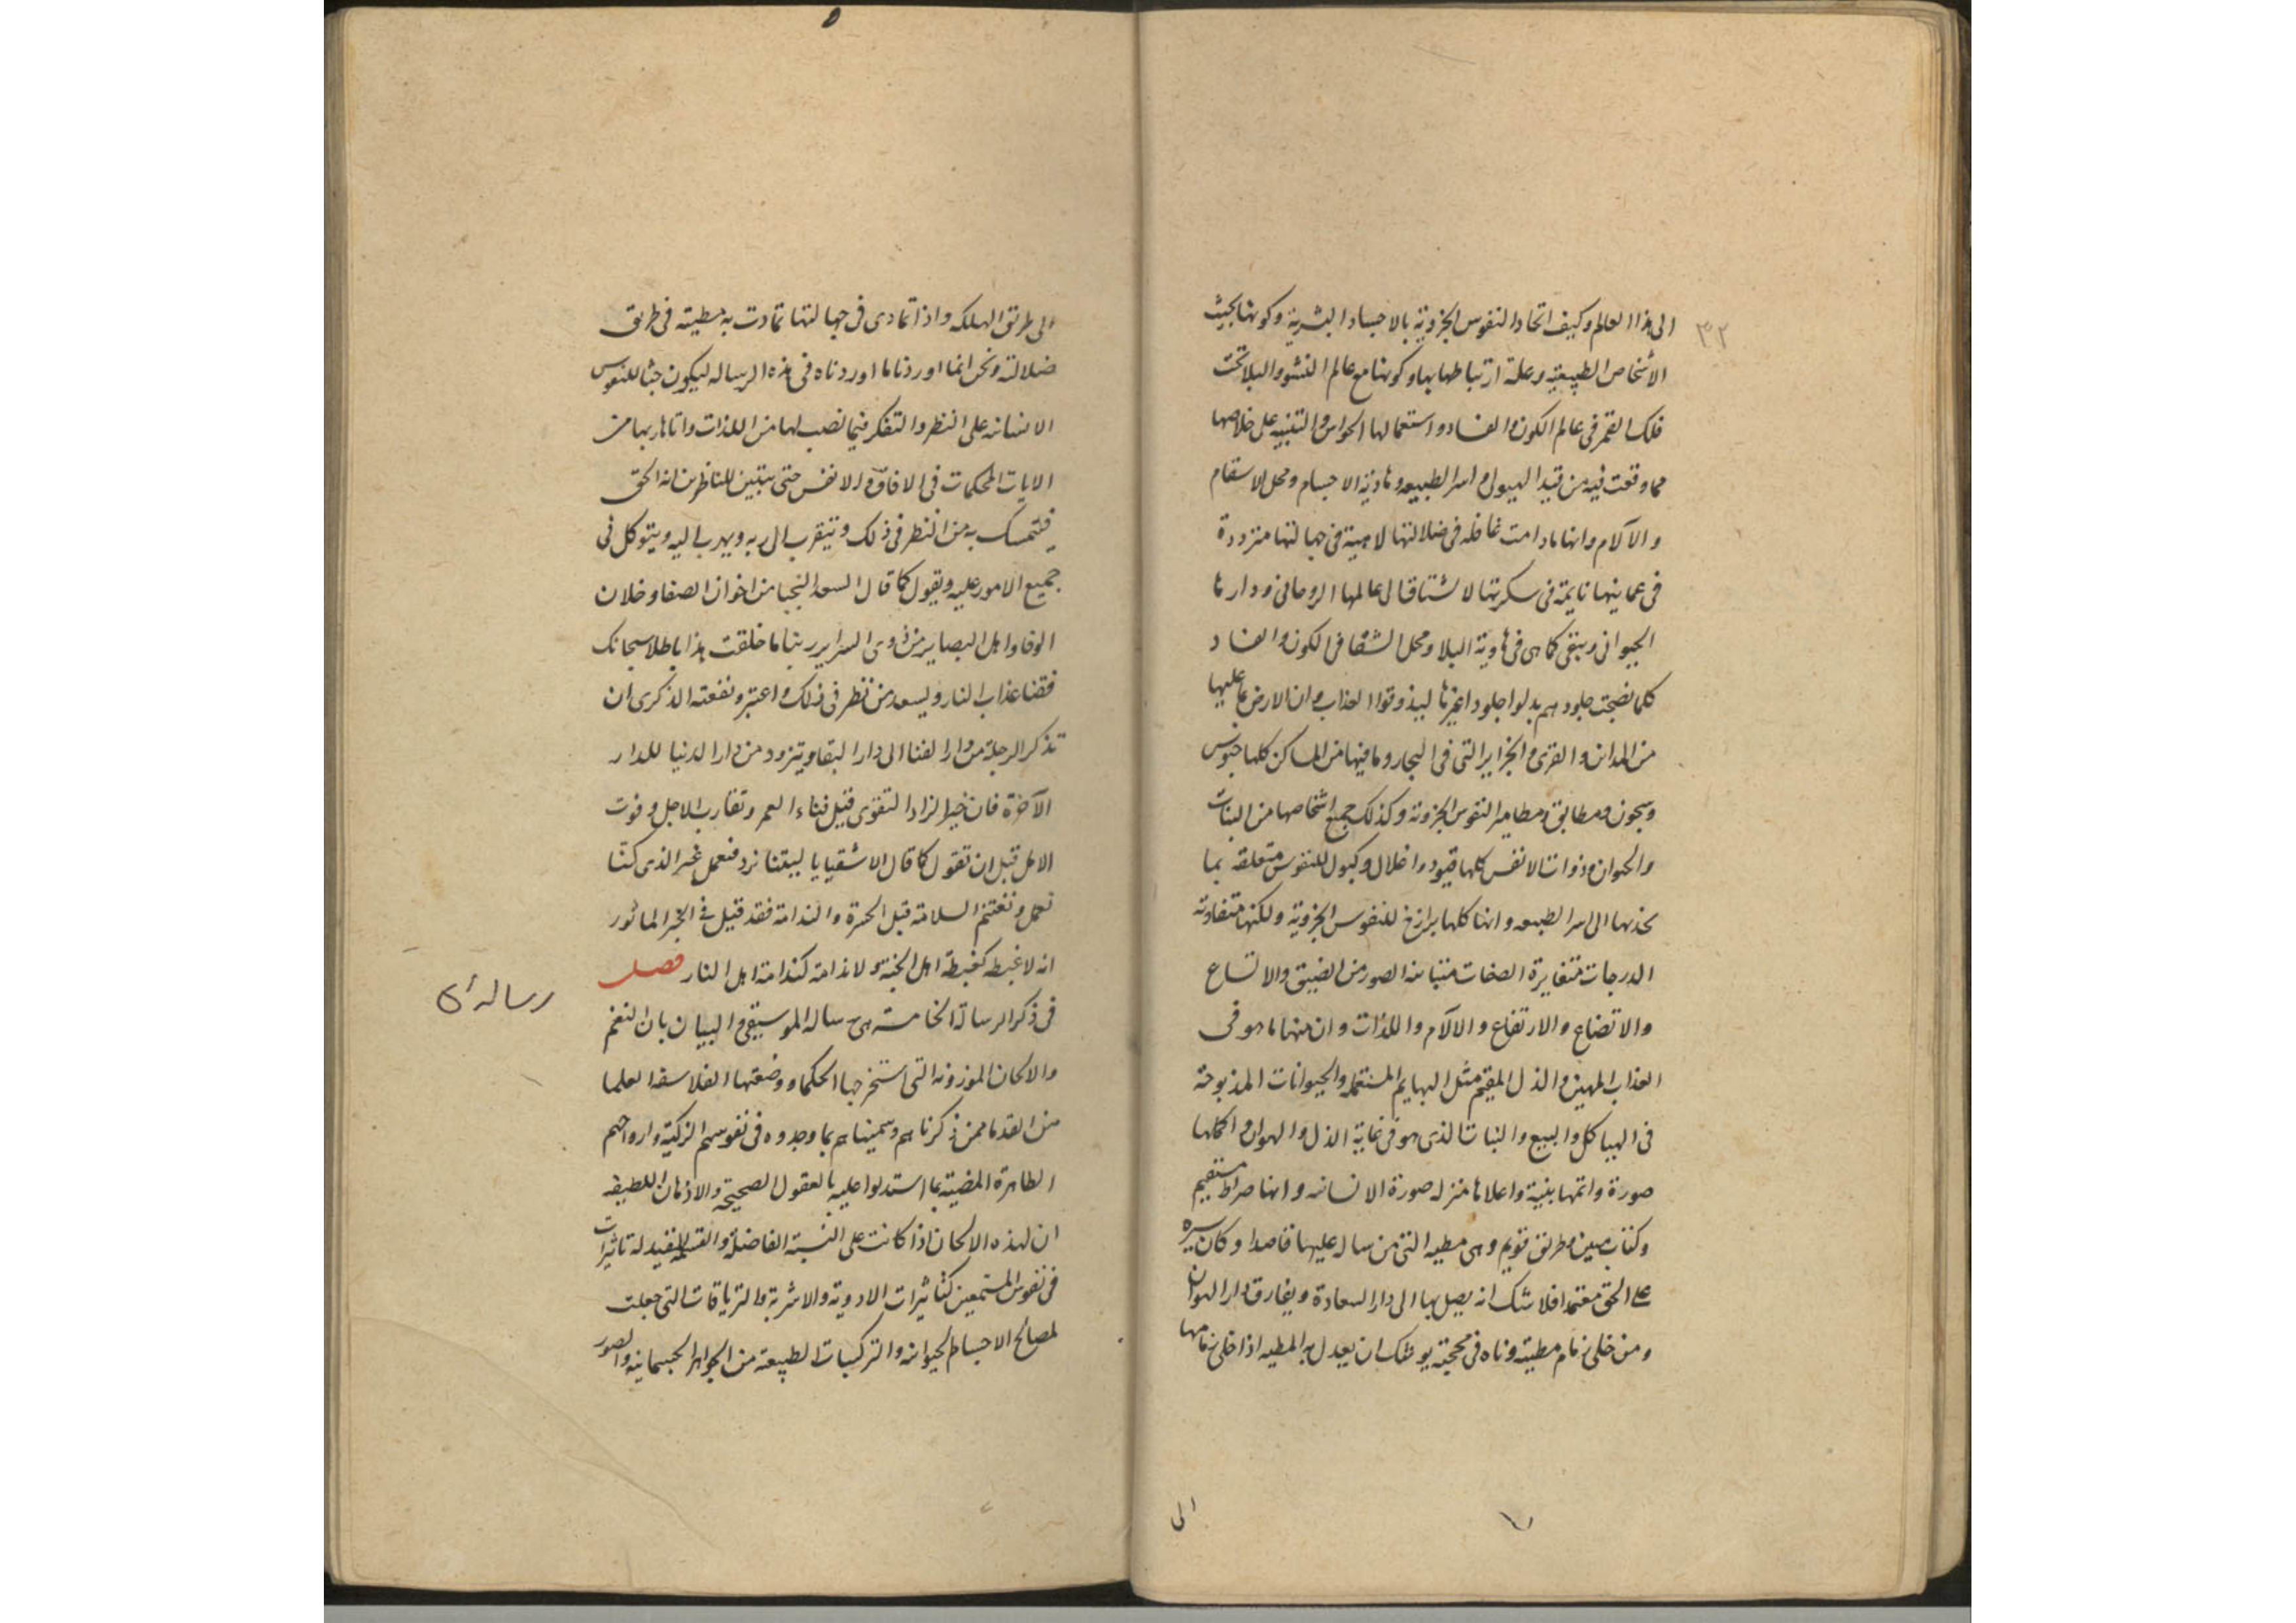 ٣٢
الى هذا العالم وكيف اتحاد النفوس الجزوية بالاجساد البشرية وكونها بحيث
الأشخاص الطبيعية وعلة ارتباطها بها وكونها مع عالم النشو والبلا تحت
فلك القمر فى عالم الكون والفساد واستعمالها الحواس والتنبيه على خلاصها
مما وقعت فيه من قيد الهيولى واسر الطبيعه وهاوية الاجسام ومحل الاسقام
والآلام وانها مادامت غافله فى ضلالتها لاهية فى جهالتها مترددة
فى عمايتها نايمة فى سكرتها لا تشتاق الى عالمها الروحانى ودارها
الحيوانى وتبقى كما هى فى هاوية البلا ومحل الشقا فى الكون والفساد
كلما نضجت جلودهم بدلوا جلودا غيرها ليذوقوا العذاب وان الارض بما عليها
من المدائن والقرى والجزاير التى فى البحار وما فيها من المساكن كلها حبوس
وسجون ومطابق ومطامير النفوس الجزوية وكذلك جميع اشخاصها من النبات
والحيوان وذوات الانفس كلها قيود واغلال وكبول للنفوس متعلقه بما
يجذبها الى اسر الطبيعه وانها كلها برازخ للنفوس الجزوية ولكنها متفاوته
الدرجات متغايرة الصفات متباينه الصور من الضيق والاتساع
والاتضاع والارتفاع والالآم واللذات وان منها ما هو فى
العذاب المهين والذل المقيم مثل البهايم المستعمله والحيوانات المذبوحة
فى الهياكل والبيع والنبات الذى هو فى غاية الذل والهوان واكملها
صورة واتمها بنية واعلاها منزله صورة الانسانيه وانها صراط مستقيم
وكتاب مبين وطريق قويم وهى مطيه التى من سار عليها قاصدا وكان سيره
على الحق معتمدا فلا شك انه يصل بها الى دار السعادة ويفارق دار الهوان
ومن خلى زمام مطيته وتاه فى محجته يوشك ان يعدل به المطيه اذا خلى زمامها
الى
الى طريق الهلكه واذا تمادى فى جهالتها تمادت به مطيته فى طريق
ضلالته ونحن انما اوردنا ما اوردناه فى هذه الرساله ليكون حثا للنفوس
الانسانيه على النظر والتفكر فيما نصب لها من اللذات واتاها ربها من
الايات المحكمات فى الافاق والانفس حتى يتبين للناظرين انه الحق
فيتمسك به من النظر فى ذلك ويتقرب الى ربه ويهرب اليه ويتوكل فى
جميع الامور عليه ويقول كما قال السعدا النجبا من اخوان الصفا وخلان
الوفا واهل البصاير من ذوى السراير ربنا ما خلقت هذا باطلا سبحانك
فقنا عذاب النار ويسعد من نظر فى ذلك واعتبر ونفعته الذكرى ان
تذكر الرحلة من دار الفنا الى دار البقا ويتزود من دار الدنيا للدار
الآخرة فان خير الزاد التقوى قبل فناء العمر وتقارب الاجل وفوت
الامل قبل ان تقول كما قال الاشقيا يا ليتنا نرد فنعمل غير الذى كنّا
نعمل وتغتنم السلامة قبل الحسرة والندامة فقد قيل فى الخبر المأثور
انه لا غبطه كغبطة اهل الجنة ولا ندامة كندامة اهل النار فصل
فى ذكر الرسالة الخامسة هى رساله الموسيقى والبيان بان النغم
رساله
والالحان الموزونه التى استخرجها الحكما ووضعتها الفلاسفه العلما
من القدما ممن ذكرناهم وسميناهم بما وجدوه فى نفوسهم الزكية وارواحهم
الطاهرة المضيئة بما استدلوا عليه بالعقول الصحيحة والاذهان اللطيفه
ان لهذه الالحان اذا كانت على النسبة الفاضلة والقسمة المفيدة له تاثيرات
فى نفوس المستمعين كتاثيرات الادوية والاشربة والترياقات التى جعلت
لمصالح الاجساط الحيوانيه والتركيبات الطبيعة من الجواهر الجسمانيه والصور